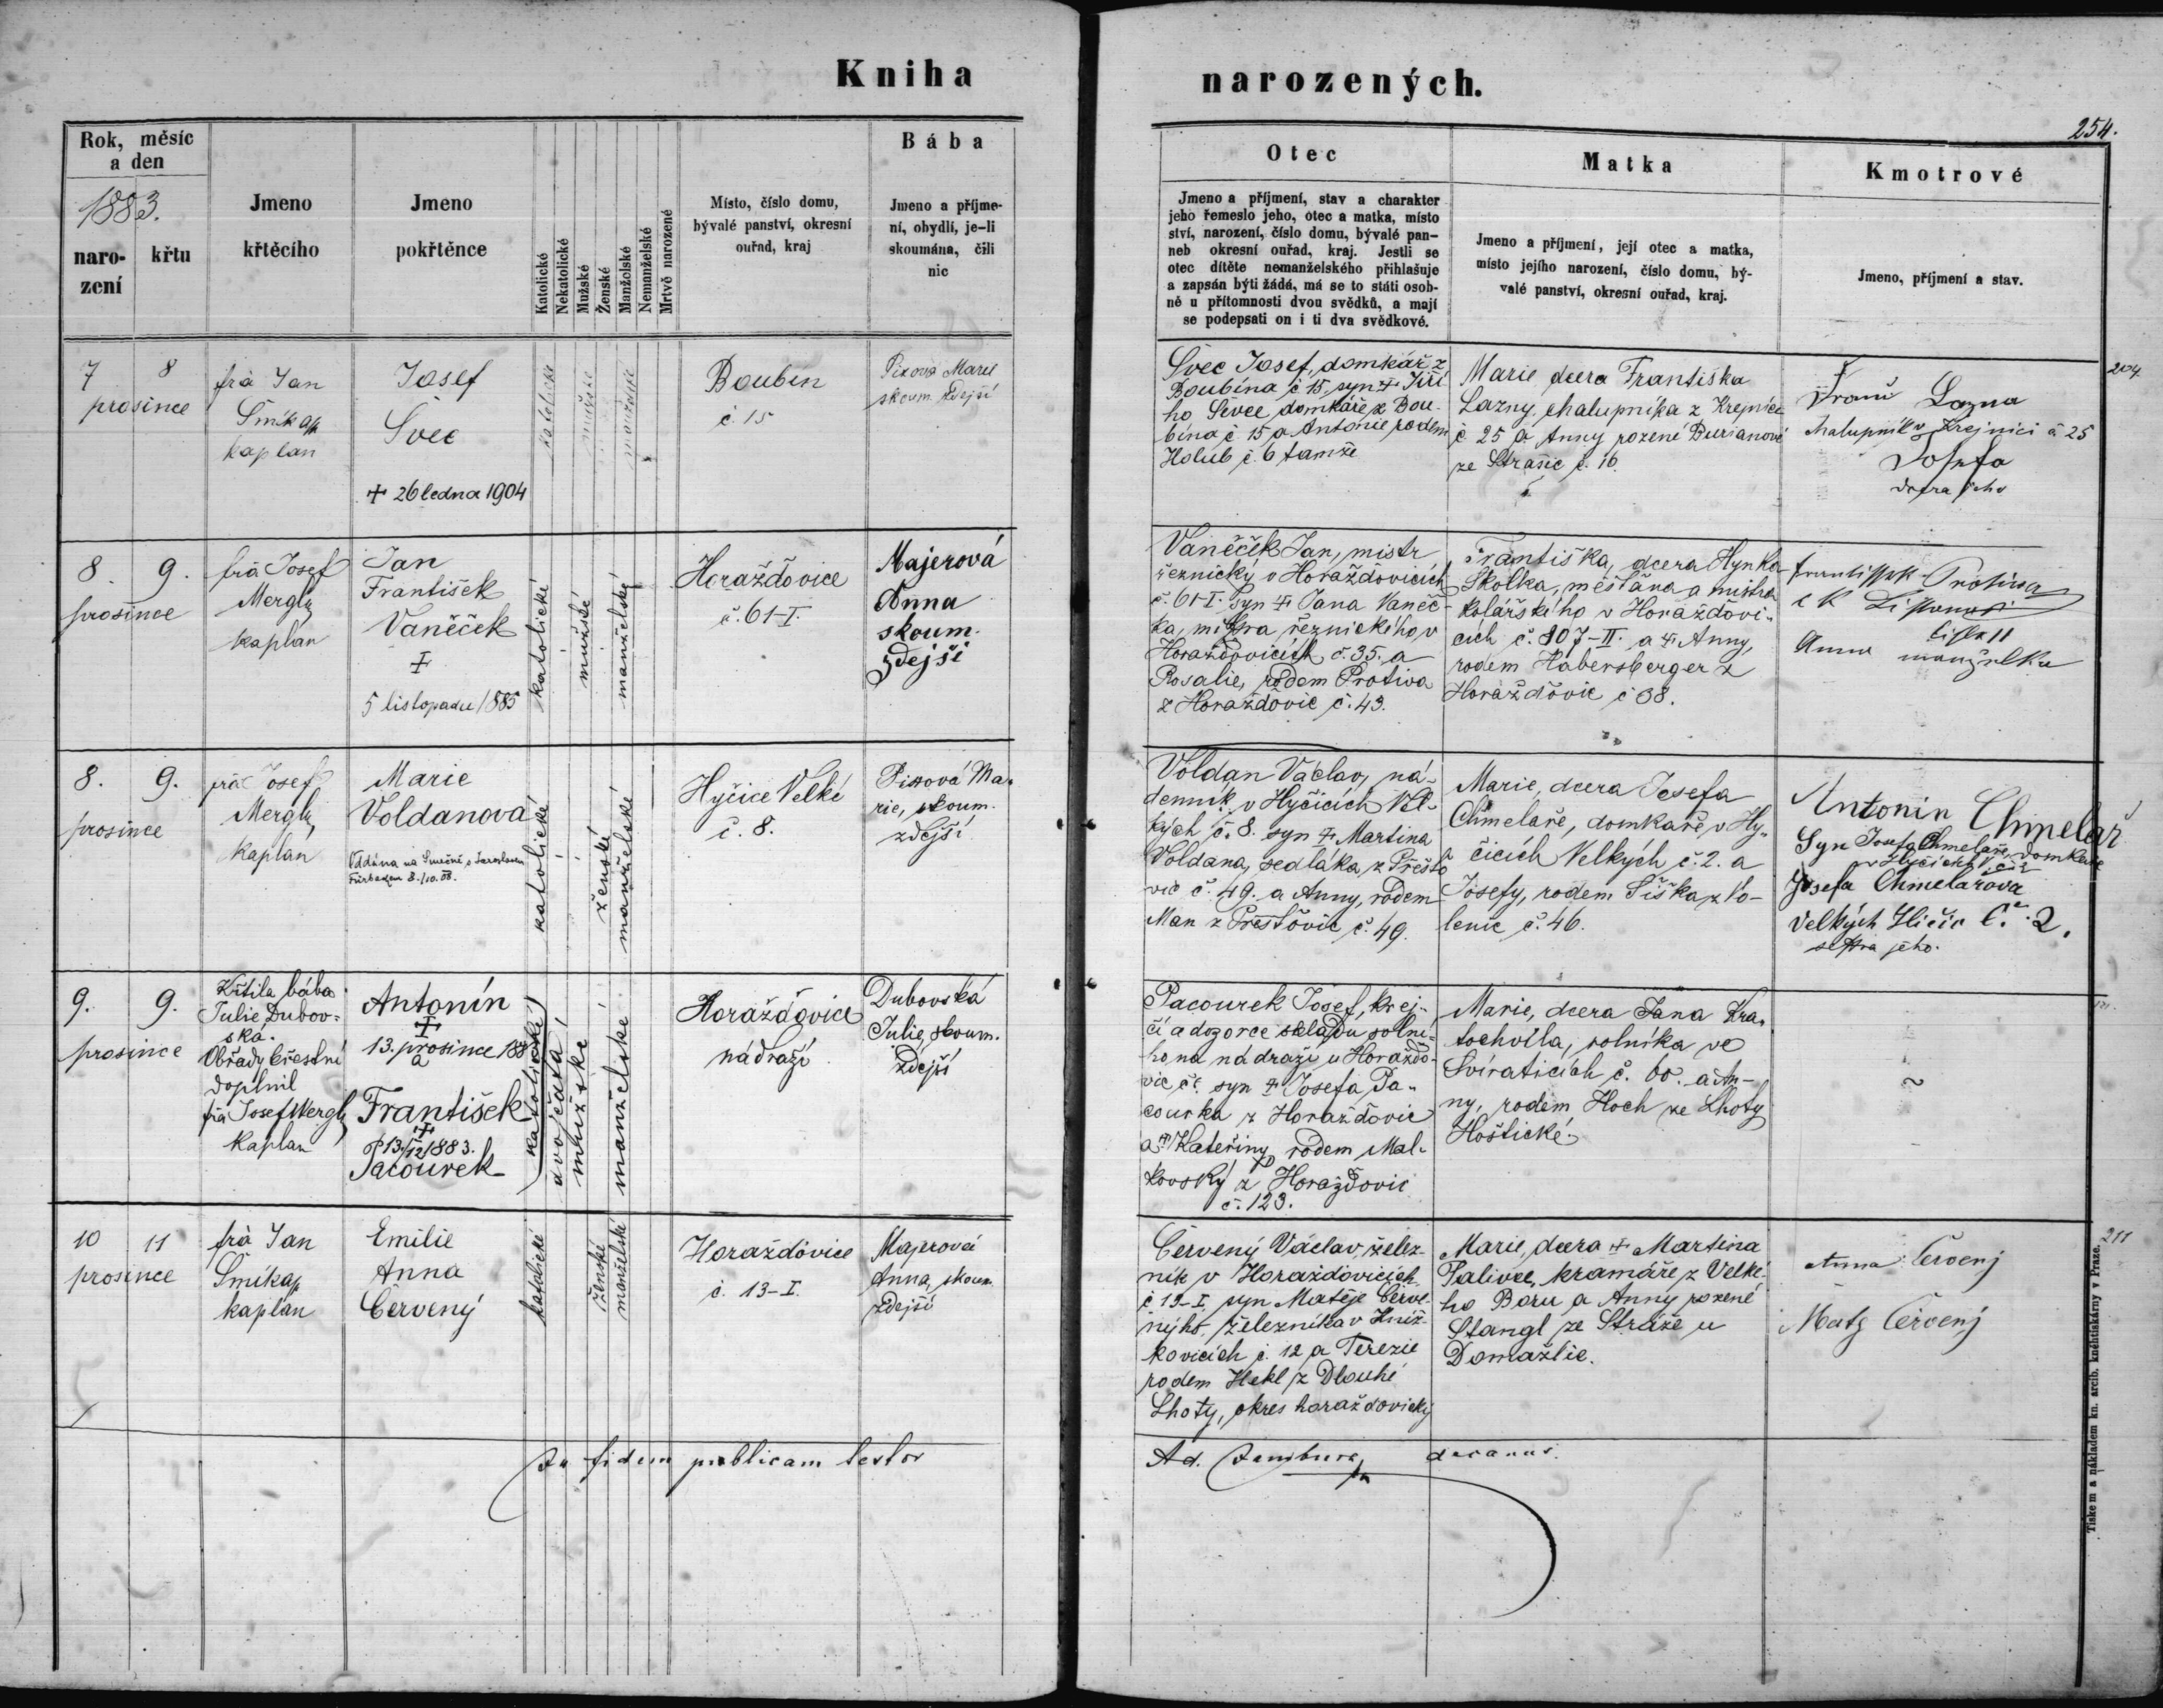 Kniha narozených.
254.
Rok, měsíc
a den
1883.
naro-
zení
křtu
Jmeno
křtěcího
Jmeno
pokřtěnce
Katolické
Nekatolické
Mužské
Ženské
Manželské
Nemanželské
Mrtvě narozené
Místo, číslo domu,
bývalé panství, okresní
ouřad, kraj
Bába
Jmeno a příjme-
ní, obydlí, je-li
skoumána, čili
nic
Otec
Jmeno a příjmení, stav a charakter
jeho řemeslo jeho, otec a matka, místo
ství, narození, číslo domu, bývalé pan-
neb okresní ouřad, kraj. Jestli se
otec dítěte nemanželského přihlašuje
a zapsán býti žádá, má se to státi osob-
ně u přítomnosti dvou svědků, a mají
se podepsati on i ti dva svědkové.
Matka
Jmeno a příjmení, její otec a matka,
místo jejího narození, číslo domu, bý-
valé panství, okresní ouřad, kraj.
Kmotrové
Jmeno, příjmení a stav.
7 8
prosince
frà Jan
Šmikap
kaplan
Josef
Švec
+ 26 ledna 1904
katolické
mužské
manželské
Boubín
č. 15
Pixova Marie
skoum. zdejší
Švec Josef, domkář z
Boubína č 15, syn + Jiří
ho Ševce domkáře z Bou-
bína č 15 a Antonie rodem
Holub č. 6 tamže
Marie, dcera Františka
Lazny, chalupníka z Krejnice
č. 25 a Anny rozené Burianové
ze Strašic č. 16.
Lazna
chalupník v Krejnici č. 25
Josefa
dcera jeho
204
8. 9.
prosince
frà Josef
Mergl,
kaplan
Jan
František
Vaněček
+
5 listopadu 1885
katolické
mužské
manželské
Horažďovice
č. 61-I.
Majerová
Anna
skoum.
zdejší
Vaněček Jan, mistr
řeznický v Horažďovicích
č. 61-I. syn + Jana Vaněč-
ka, mistra řeznického v
Horažďovicích č. 35. a
Rosalie, rodem Protiva
z Horažďovic č. 43.
Františka, dcera Hynka
Školka, měšťana a mistra
kolářského v Horažďovi-
cích č. 107-II. a + Anny,
rodem Habersberger z
Horažďovic č 38.
Protiva
Anna manželka
8. 9.
prosince
frà Josef
Mergl,
kaplan
Marie
Voldanova
Oddána na Smečně s Jaroslavem
8./10. 08.
katolické
ženské
manželské
Hyčice Velké
č. 8.
Pixová Ma-
rie, skoum.
zdejší
Voldan Václav, ná-
denník v Hyčicích Vel-
kých č. 8. syn + Martina
Voldana, sedláka z Přešťo
vic č. 49. a Anny, rodem
Man z Přešťovic č. 49.
Marie, dcera Josefa
Chmelaře, domkaře v Hy-
čicích Velkých č. 2. a
Josefy, rodem Šiška z Vo-
lenic č. 46.
Antonin Chmelař
Syn Josefa Chmelaře, domkaře
v Hyčicích V. č. 2
Josefa Chmelařova
Velkých Hičic č. 2.
sestra jeho.
9. 9.
prosince
Křtila bába
Julie Dubov-
ská.
Obřady křestní
doplnil
frà Josef Mergl,
kaplan
Antonín
+
13. prosince 188
a
František
+
13/12 1883.
Pacourek
katolické
dvojčata
mužské
manželské
Horažďovice
nádraží
Dubovská
Julie, skoum.
zdejší
Pacourek Josef, krej-
čí a dozorce skladu solní-
ho na nádraží u Horažďo-
vic č. syn + Josefa Pa-
courka z Horažďovic
a + Kateřiny, rodem Mal-
kovský z Horažďovic
č. 123.
Marie, dcera Jana Kra-
tochvíla, rolníka ve
Svíraticích č. 60. a An-
ny, rodem Hoch ze Lhoty
Hoštické.
10 11
prosince
frà Jan
Šmikap
kaplan
Emilie
Anna
Červený
katolické
ženské
manželské
Horažďovice
č. 13-I.
Majerová
Anna, skoum.
zdejší
Červený Václav, želez-
ník v Horažďovicích
č 13-I, syn Matěje Červe-
ného, železníka v Kníž-
kovicích č. 12 a Terezie
rodem Hekl z Dlouhé
Lhoty, okres horažďovický
Marie, dcera + Martina
Palivce, kramáře z Velké-
ho Boru a Anny rozené
Stangl ze Stráže u
Domažlic.
Anna Červený
Matěj Červený
211
In fidem publicam testor
Ad. Jambura decanus.
Tiskem a nákladem kn. arcib. kněhtiskárny v Praze.